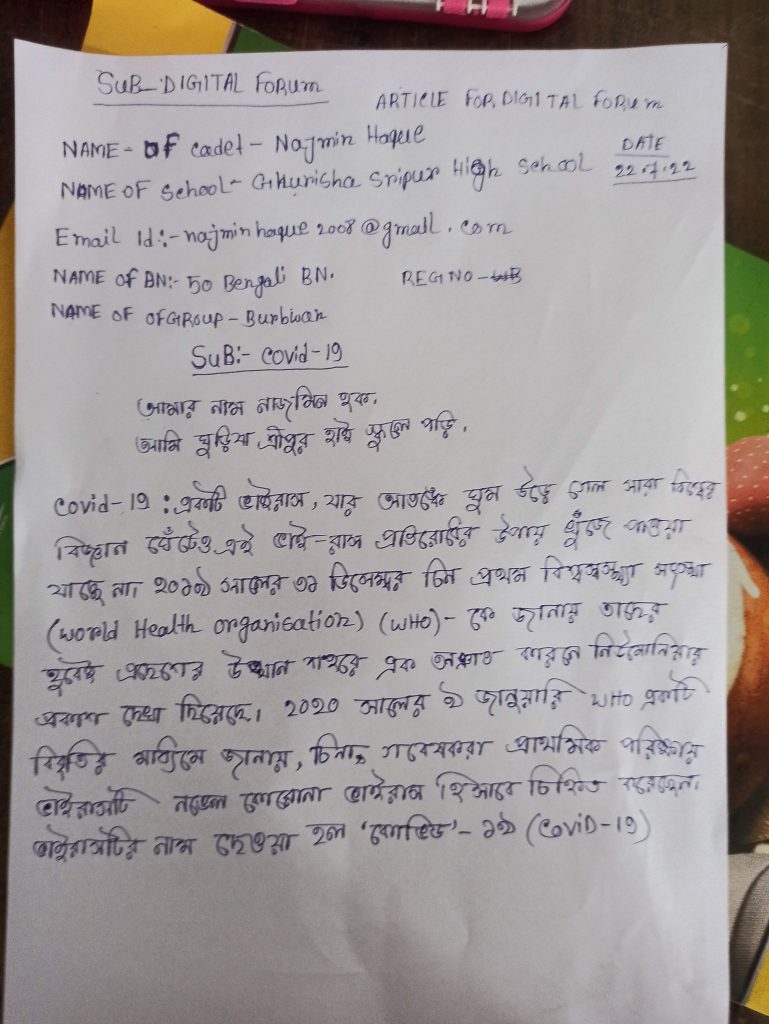 SUB-DIGITAL FORUM
ARTICLE FOR DIGITAL FORUM
NAME - OF cadet - Najmin Haque
DATE
NAME OF School - Ghurisha Sripur High School
22.7.22
Email Id:- najminhaque2008@gmail.com
NAME of BN:- 50 Bengali BN. REG NO - WB
NAME OF OF GROUP - Burbwan
SUB:- covid-19
আমার নাম নাজমিন হক,
আমি ঘুড়িষা শ্রীপুর হাই স্কুলে পড়ি,
Covid-19 : একটি ভাইরাস, যার আতঙ্কে ঘুম উড়ে গেল সারা বিশ্বের
বিজ্ঞান ঘেঁটেও এই ভাই-রাস প্রতিরোধের উপায় খুঁজে পাওয়া
যাচ্ছে না। ২০১৯ সালের ৩১ ডিসেম্বর চিন প্রথম বিশ্বস্বাস্থ্য সংস্থা
(World Health organisation) (WHO) - কে জানায় তাদের
এক অজ্ঞাত কারনে নিউমোনিয়ার
প্রকাশ দেখা দিয়েছে। ২০২০ সালের ৯ জানুয়ারি WHO একটি
বিবৃতির মাধ্যিমে জানায়, চিনা গবেষকরা প্রাথমিক পরিক্ষায়
ভাইরাসটি নভেল করোনা ভাইরাস হিসাবে চিহ্নিত করেছেন।
ভাইরাসটির নাম দেওয়া হল 'কোভিড' - ১৯ (COViD-19)